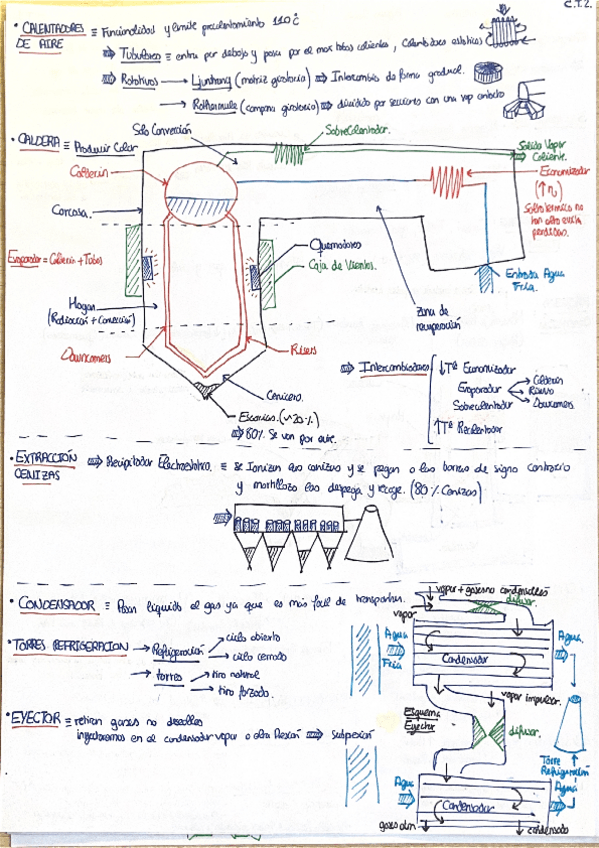 C.T.2.
• CALENTADORES DE AIRE ≡ Funcionalidad y límite precalentamiento 110°C
⇒ Tubulares ≡ entra por debajo y pasa por el más tubos calientes, Calentadores estáticos
⇒ Rotativos → Ljunstrong (matriz giratoria) ⇒ Intercambio de forma gradual.
→ Rothemule (campana giratoria) ⇒ dividido por secciones con una vap
• CALDERA ≡ Producir Calor
Solo Convección
Sobrecalentador.
Salida Vapor Caliente.
Calderín
Economizador
(↑η)
Carcasa.
Evaporador = Calderín + Tubos
Quemadores
Caja de Vientos.
Entrada Agua Fría.
Hogar
(Radiación + Convección)
Zona de recuperación
Downcomers
Risers
Cenicero.
Escorias. (~20%)
⇒ 80% Se van por aire.
⇒ Intercambiadores
↓Tª Economizador
Evaporador → Calderín
→ Risers
→ Downcomers
Sobrecalentador
↑Tª Recalentador
• EXTRACCIÓN CENIZAS ⇒ Precipitador Electroestático. ≡ Se Ionizan las cenizas y se pegan a las barras de signo contrario
y martillazo las despega y recoge. (80% Cenizas)
• CONDENSADOR ≡ Pasan líquido el gas ya que es más fácil de transportar.
• TORRES REFRIGERACION → Refrigeración → ciclo abierto
→ ciclo cerrado
→ torres → tiro natural
→ tiro forzado.
• EYECTOR ≡ retiran gases no
inyectaremos en el condensador vapor a alta Presión ⇒ Subpresión
vapor + gases no condensables
difusor.
vapor
Agua Fría
Condensador
Agua.
Esquema Eyector
vapor impulsor.
difusor.
Torre Refrigeración
Agua
Condensador
Agua
gases atm.
condensado